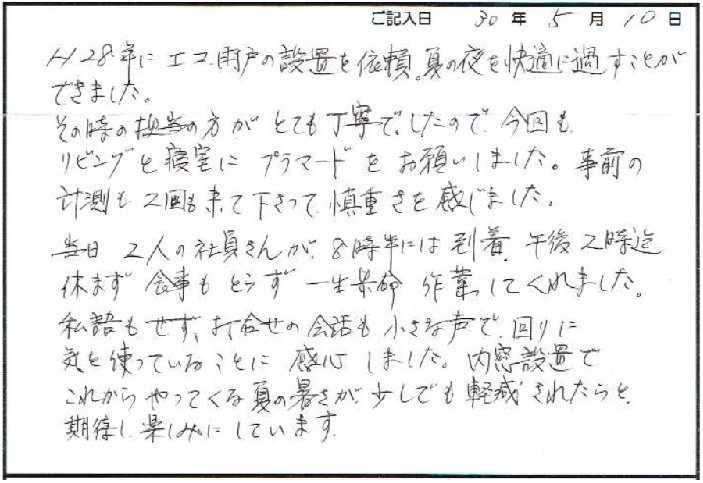 ご記入日 30年 5月 10日
H28年に エコ雨戸の設置を依頼。夏の夜を快適に過すことが
できました。
その時の担当の方が とても丁寧でしたので 今回も
リビングと寝室に プラマードを お願いしました。事前の
計測も 2回も来て下さって 慎重さを感じました。
当日 2人の社員さんが 8時半には到着 午後2時迄
休まず 食事もとらず 一生懸命 作業してくれました。
私語もせず、打合せの会話も小さな声で 回りに
気を使っていることに 感心しました。内窓設置で
これからやってくる夏の暑さが 少しでも軽減されたらと
期待し 楽しみにしています